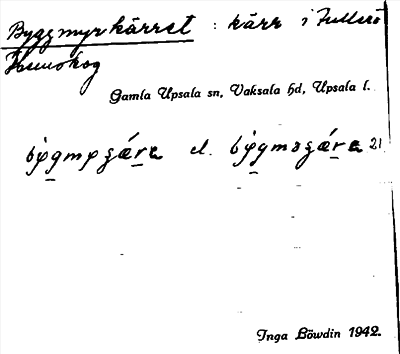 Byggmyrkärret : kärr i Fullerö
Hemskog
Gamla Upsala sn, Vaksala hd, Upsala l.
el. 21
Inga Löwdin 1942.